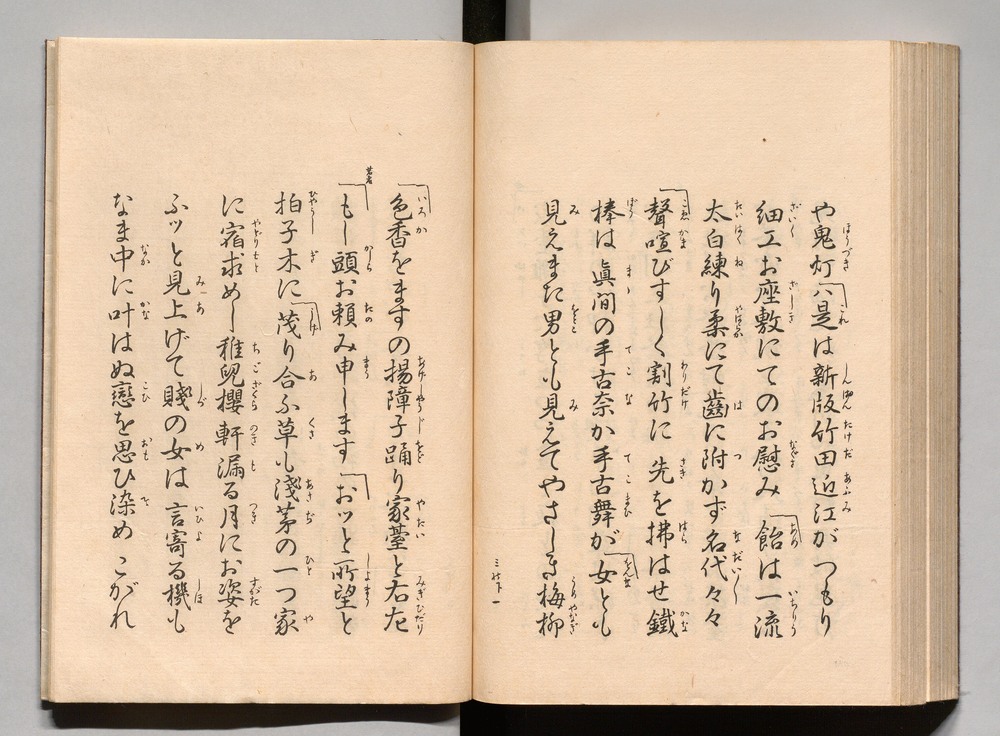 や鬼灯「是は新版竹田近江がつもり
細工お座敷にてのお慰み「飴は一流
太白練り柔にて齒に附かず名代々々
「聲喧びすしく割竹に先を拂はせ鐵
棒は眞間の手古奈か手古舞が「女とも
見えまた男とも見えてやさしき梅柳
三ノ下一
「色香をますの揚障子踊り家臺と右左
若者
「もし頭お頼み申します「おッと所望と
拍子木に「茂り合ふ草も淺茅の一つ家
に宿求めし稚兒櫻軒漏る月にお姿を
ふッと見上げて賤の女は言寄る機も
なま中に叶はぬ戀を思ひ染めこがれ